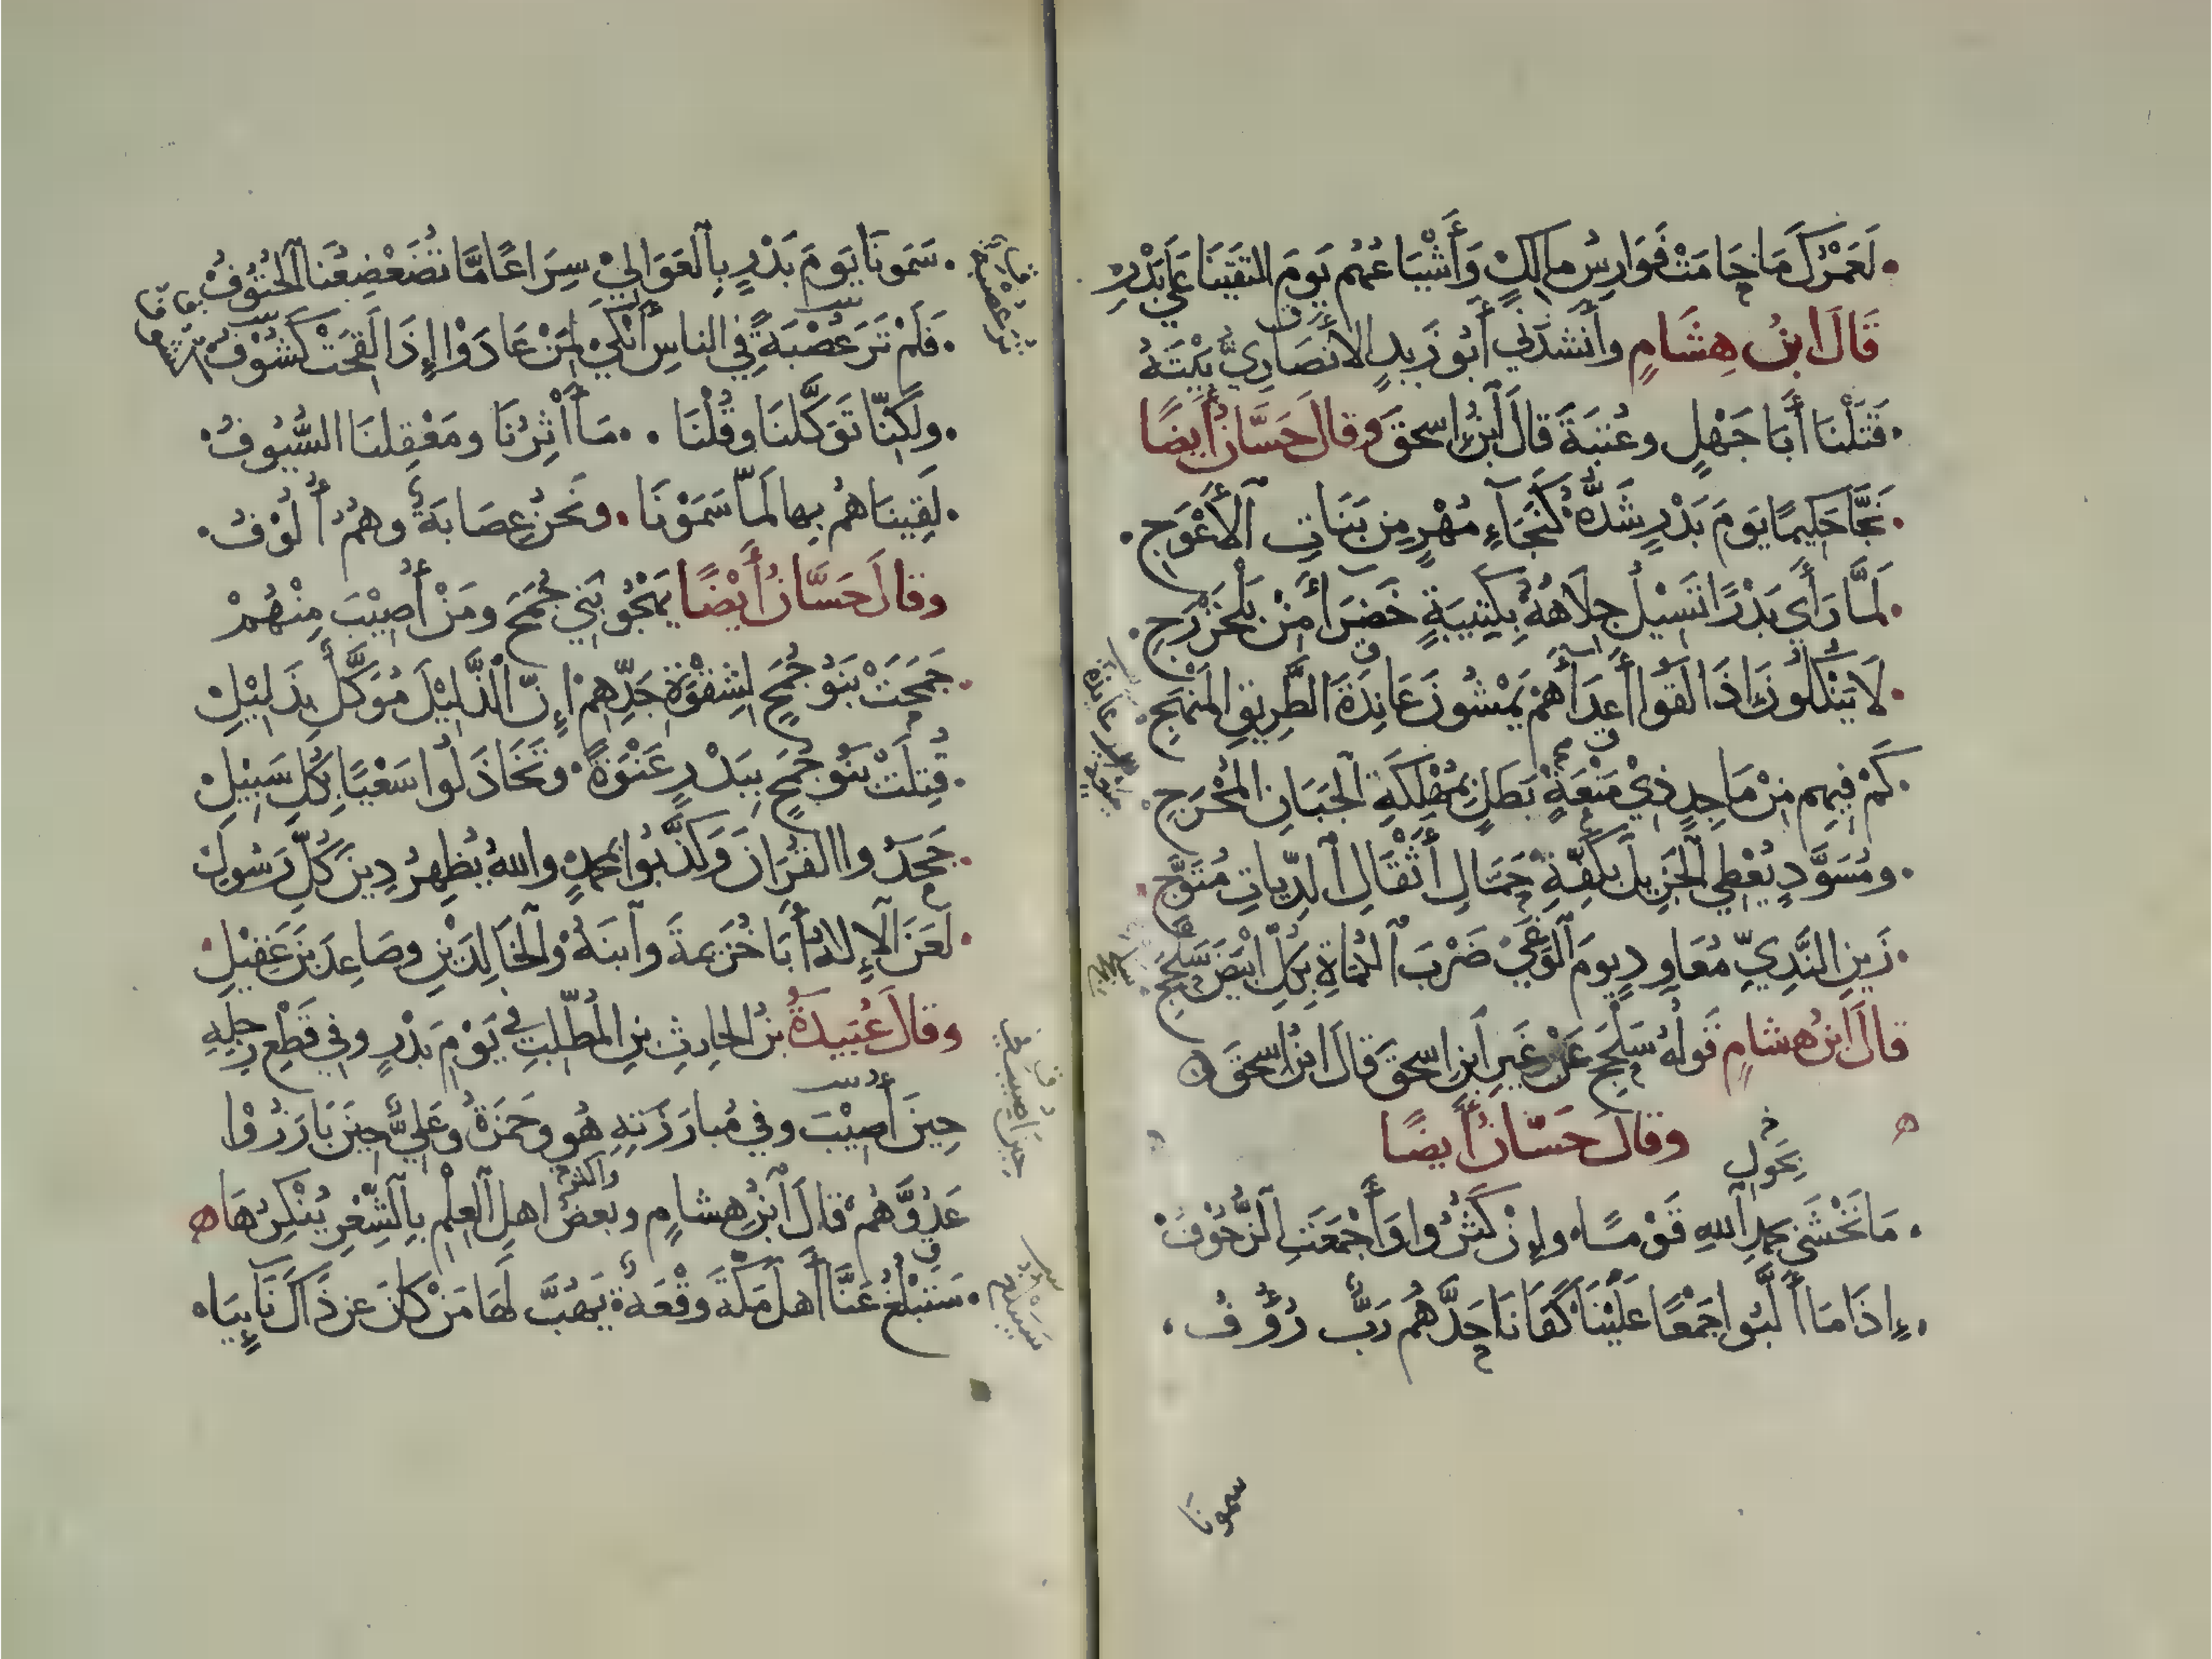 لَعَمْرُكَ مَا حَامَتْ فَوَارِسُ مالِكٍ وَأَشْيَاعُهُم يَومَ التقَيْنَا عَلَى بَدْرِ
قَالَ ابنُ هِشَامٍ وأَنشَدَنِي أَبُو زَيدٍ الأَنصَارِيُّ بَيْتَهُ
قَتَلْنَا أَبَا جَهْلٍ وعُتبَةَ قالَ ابنُ إسحقَ وقالَ حَسَّانُ أَيضًا
نَجَّا حَكِيمًا يَومَ بَدْرٍ شَدُّهُ كَنَجَآءِ مُهْرٍ مِن بَنَاتِ الأَعْوَجِ
لَمَّا رَأَى بَدْرًا تَسِيْلُ جِلَاهُهُ بِكَتِيبَةٍ خَضْرَآءَ مِنْ بَلْخَزْرَجِ
لَا يَنْكُلُونَ إذَا لَقَوا أَعدَآءَهُمْ يَمْشُونَ عَانِدَةَ الطَّرِيقِ المَنْهَجِ
كَمْ فِيهِم مِنْ مَاجِدٍ ذِيْ مَنْعَةٍ بَطَلٍ بِمَهْلَكَةِ الجَبَانِ المُحْرَجِ
ومُسَوَّدٍ يُعْطِي الجَزِيلَ بِكَفِّهِ حَمَّالِ أَثْقَالِ الدِّيَاتِ مُتَوَّجِ
زَينِ النَّدِيِّ مُعَاوِدٍ يومَ الوَغَى ضَرْبَ الكُمَاةِ بِكُلِّ أَبْيَضَ سَلْجَجِ
قالَ ابنُ هشامٍ قَولُهُ سَلْجَجِ عَنْ غَيرِ ابنِ إسحقَ قَالَ ابنُ إسحقَ
وقالَ حَسَّانُ أَيضًا
مَا نَخْشَى بحمدِ اللهِ قَوْمًا وإِنْ كَثُرُوا وَأَجْمَعَتِ الزُّحُوْفُ
بِحَوْلِ
إِذَا مَا أَلَّبُوا جَمْعًا عَلَيْنَا كَفَانَا حَدَّهُم رَبٌّ رَؤُفُ
سمونا
سَمَونَا يَومَ بَدْرٍ بِالعَوَالِيْ سِرَاعًا مَّا تُضَعْضِعُنَا الحُتُوفُ
فَلَمْ تَرَ عُصْبَةً فِي الناسِ أَنْكَى لِمَنْ عَادَوْا إِذَا لَقِحَتْ كَشُوْفُ
ولَكِنَّا تَوَكَّلنَا وقُلْنَا مَآأثِرُنَا ومَعْقِلنَا السُّيُوفُ
لَقِينَاهُمْ بِها لَمَّا سَمَوْنَا ونَحْنُ عِصَابَةٌ وهُمُ أُلُوْفُ
وقالَ حَسَّانُ أَيْضًا يَهْجُو بَنِي جُمَحَ ومَنْ أُصِيْبَ مِنْهُمْ
جَمَحَتْ بَنُو جُمَحٍ لِشِقْوَةِ جَدِّهِمْ إِنَّ الذَّلِيْلَ مُوَكَّلٌ بِذَلِيْلِ
قُتِلَتْ بَنُو جُمَحٍ بِبَدْرٍ عَنْوَةً وتَخَاذَلُوا سَعْيًا بِكُلِّ سَبِيْلِ
جَحَدُوا القُرَانَ وَكَذَّبُوا بمحمدٍ واللهُ يُظْهِرُ دِينَ كُلِّ رَسُولِ
لَعَنَ الإِلَهُ أَبَا خُزَيمةَ وابنَهُ والخَالِدَيْنِ وصَاعِدَ بنَ عَقِيْلِ
وقالَ عُبَيدَةُ بنُ الحارِثِ بنِ المُطَّلِبِ فِي يَوْمِ بَدْرٍ وفِي قَطْعِ رِجلِهِ
حِينَ أُصِيْبَ وفِي مُبارَزَتِهِ هُو وحَمزَةُ وعَلِيٌّ حِينَ بَارَزُوْا
عَدُوَّهُمْ قالَ ابنُ هشامٍ وبعضُ اهلِ العِلْمِ بِالشِّعْرِ يُنْكِرُهَا
وأكثر
سَتَبْلُغُ عَنَّا أَهلَ مَكَّةَ وَقْعَةٌ يَهُبُّ لَهَا مَنْ كَانَ عن ذَاكَ نَايِيَا